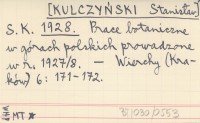 [KULCZYŃSKI Stanisław]
S. K. 1928. Prace botaniczne
w górach polskich prowadzone
w r. 1927/8. — Wierchy (Kra-
ków) 6: 171-172.
MT *